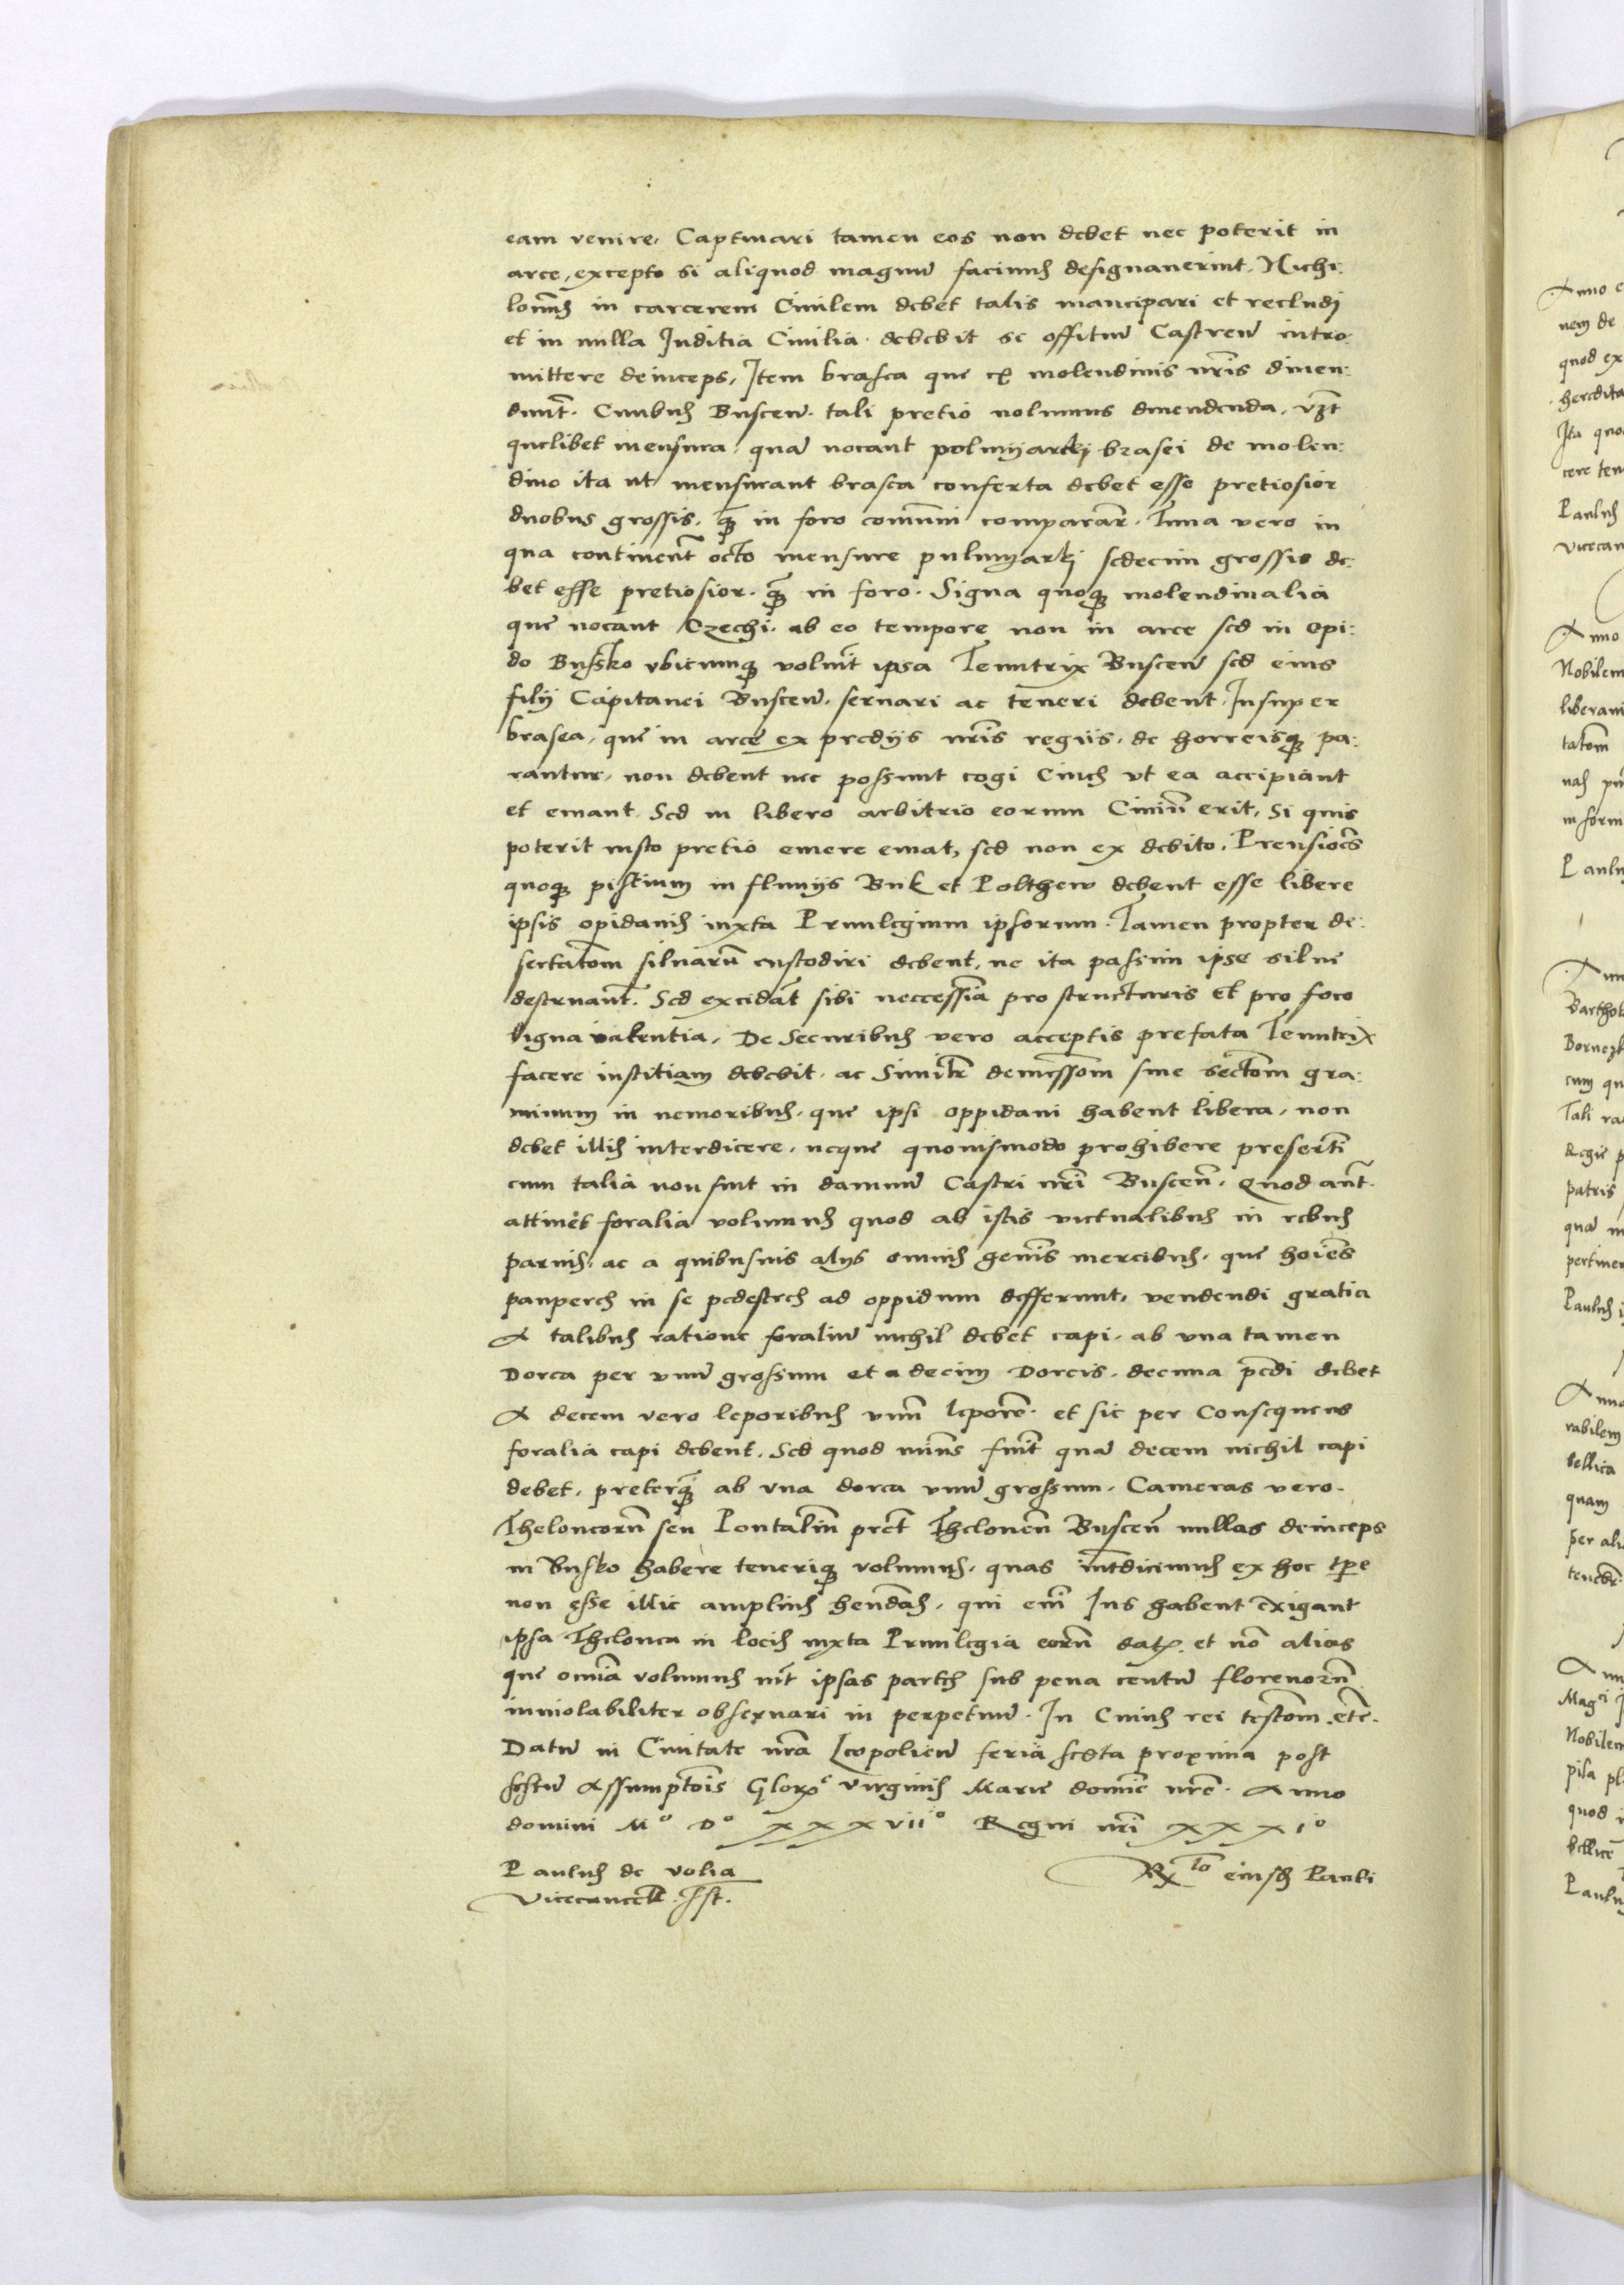 eam venire. Captiuari tamen eos non debet nec poterit in
arce, excepto si aliquod magnū facinus designauerint. Nichi:
lomin9 in carcerem Ciuilem debet talis mancipari et recludi
et in nulla Juditia Ciuilia debebit se offitiū Castren̄ intro:
mittere deinceps, Item brasea que ex molendinis nr̄is diuen:
dunt̄. Ciuibus Buscen̄. tali pretio uolumus diuendenda, vzt
quelibet mensura quā uocant polmyarki brasei de molen:
dino ita ut mensurant brasea conferta debet esse pretiosior
duobus grossis. q̄ꝫ in foro comuni comparar̄. Tina vero in
qua continent̄ octo mensure pulmyarki sedecim grossis de:
bet esse pretiosior. q̄ꝫ in foro. Signa quoqꝫ molendinalia
que uocant Czechi. ab eo tempore non in arce sed in opi:
do Busko vbicumqꝫ voluerit ipsa Tenutrix Buscen̄ sed eius
filij Capitanei Buscen̄. seruari ac teneri debent. Insuper
brasea, que in arce ex predijs nr̄is regijs, de horreisqꝫ pa:
rantur, non debent nec possunt cogi Ciues vt ea accipiant
et emant. Sed in libero arbitrio eorum Ciuiū erit, Si quis
poterit iusto pretio emere emat, sed non ex debito. Prensiōes
quoqꝫ piscium in fluuijs Buk et Polthew debent esse libere
ipsis opidanis iuxta Priuilegium ipsorum. Tamen propter de:
sertatōm siluarū custodiri debent, ne ita passim ipse silue
destruant̄. Sed excidāt sibi neccess̄ia pro structuris et pro foco
ligna iacentia, De Securibus vero acceptis prefata Tenutrix
facere iustitiam debebit. ac Similr̄ demessiōm siue sectōm gra:
minum in nemoribus. que ipsi oppidani habent libera, non
debet illis interdicere, neque quouismodo prohibere presertī
cum talia non sint in damnū Castri nr̄i Buscen̄. Quod aut̄.
attinet foralia volumus quod ab istis victualibus in rebus
paruis, ac a quibusuis alijs omnis gen̄is mercibus. que hoīes
pauperes in se pedestres ad oppidum defferunt, vendendi gratia
A talibus ratione foraliū nichil debet capi. ab vna tamen
Dorca per vnū grossum et a decim Dorcis. decima pēdi debet
A decem vero leporibus vnū leporē. et sic per Consequens
foralia capi debent. Sed quod min9 fuit quā decem nichil capi
debet, preterq̄ꝫ ab vna dorca vnū grossum. Cameras vero.
Theloneorū seu Pontaliū pret̄ Thelonen̄ Buscen̄ nullas deinceps
in Busko habere teneriqꝫ volumus, quas int̄dicimus ex hoc tp̄e
non esse illic amplius hendas, qui em̄ Jus habent exigant
ipsa Thelonea in locis iuxta Priuilegia eorū dat. et nō alias
que omīa volumus int̄ ipsas partes sub pena centū florenorū
inuiolabiliter obseruari in perpetuū. In Cuius rei testōm etc.
Datū in Ciuitate nr̄a Leopolien̄ feria sexta proxima post
festū Assumptōis Glorxe virginis Marie domīe nr̄e. Anno
domini Mo Do xxxviio Regni nr̄i xxxio
Paulus de volia
Vicecancell. sst.
Rx to eiusdē Pauli